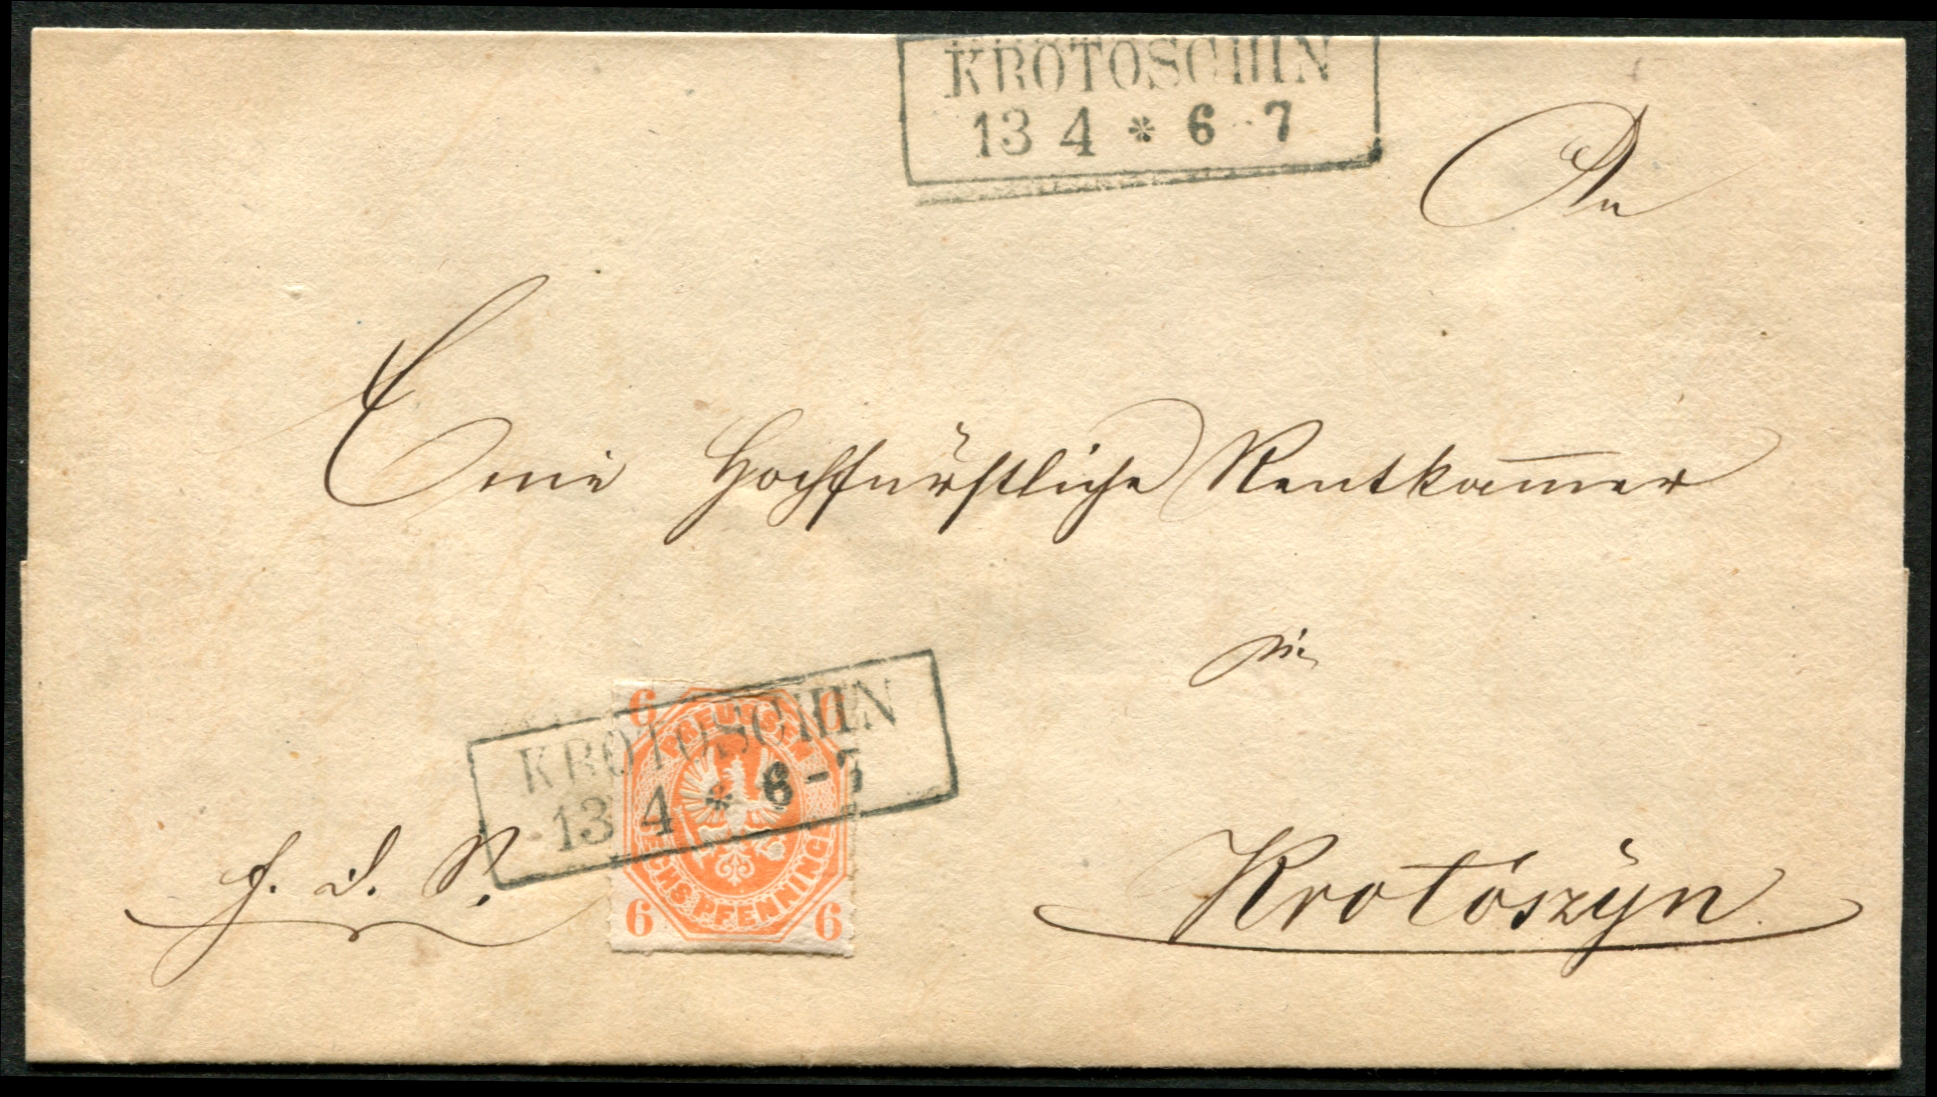 KROTOSCHIN
13 4 * 6 - 7
An
Eine Hochfürstliche Rentkam̅er
in
6 6
PREUSSEN
KROTOSCHIN
13 4 * 6 - 7
SECHS PFENNINGE
6 6
f. d. R.
Krotoszÿn